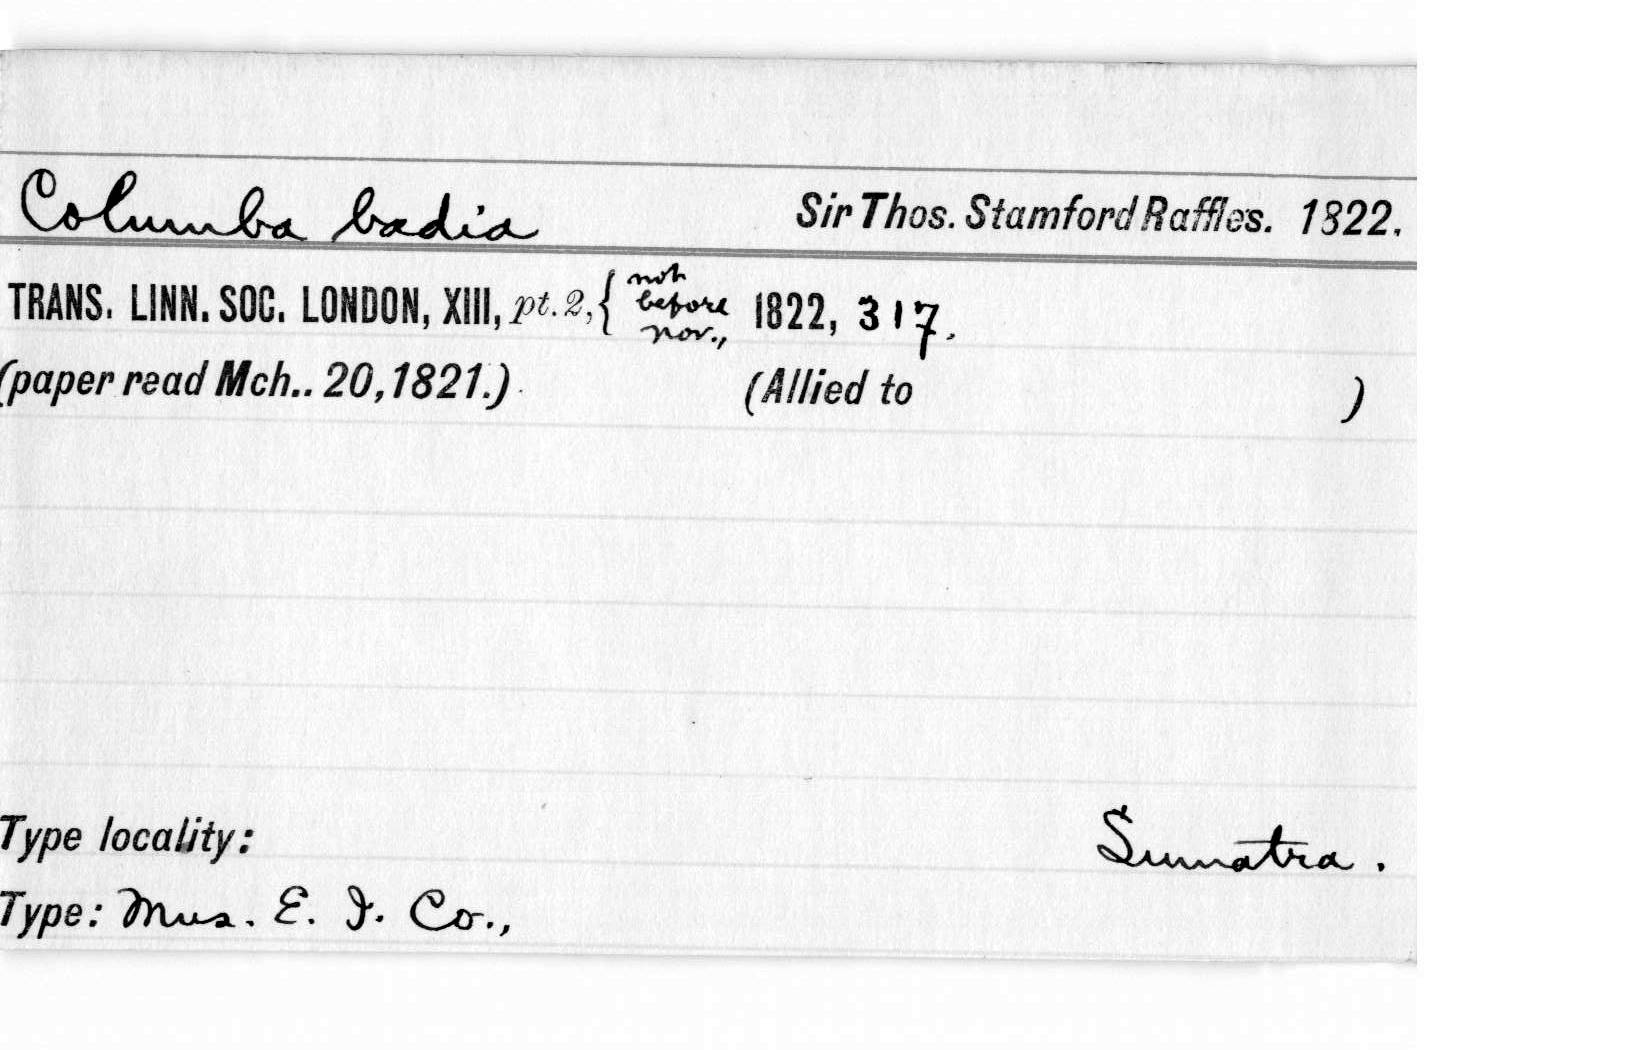 Columba badia Sir Thos. Stamford Raffles. 1822.
TRANS. LINN. SOC. LONDON, XIII, pt. 2, { not before nov., 1822, 317.
(paper read Mch.. 20, 1821.) (Allied to )
Type locality: Sumatra.
Type: Mus. E. I. Co.,